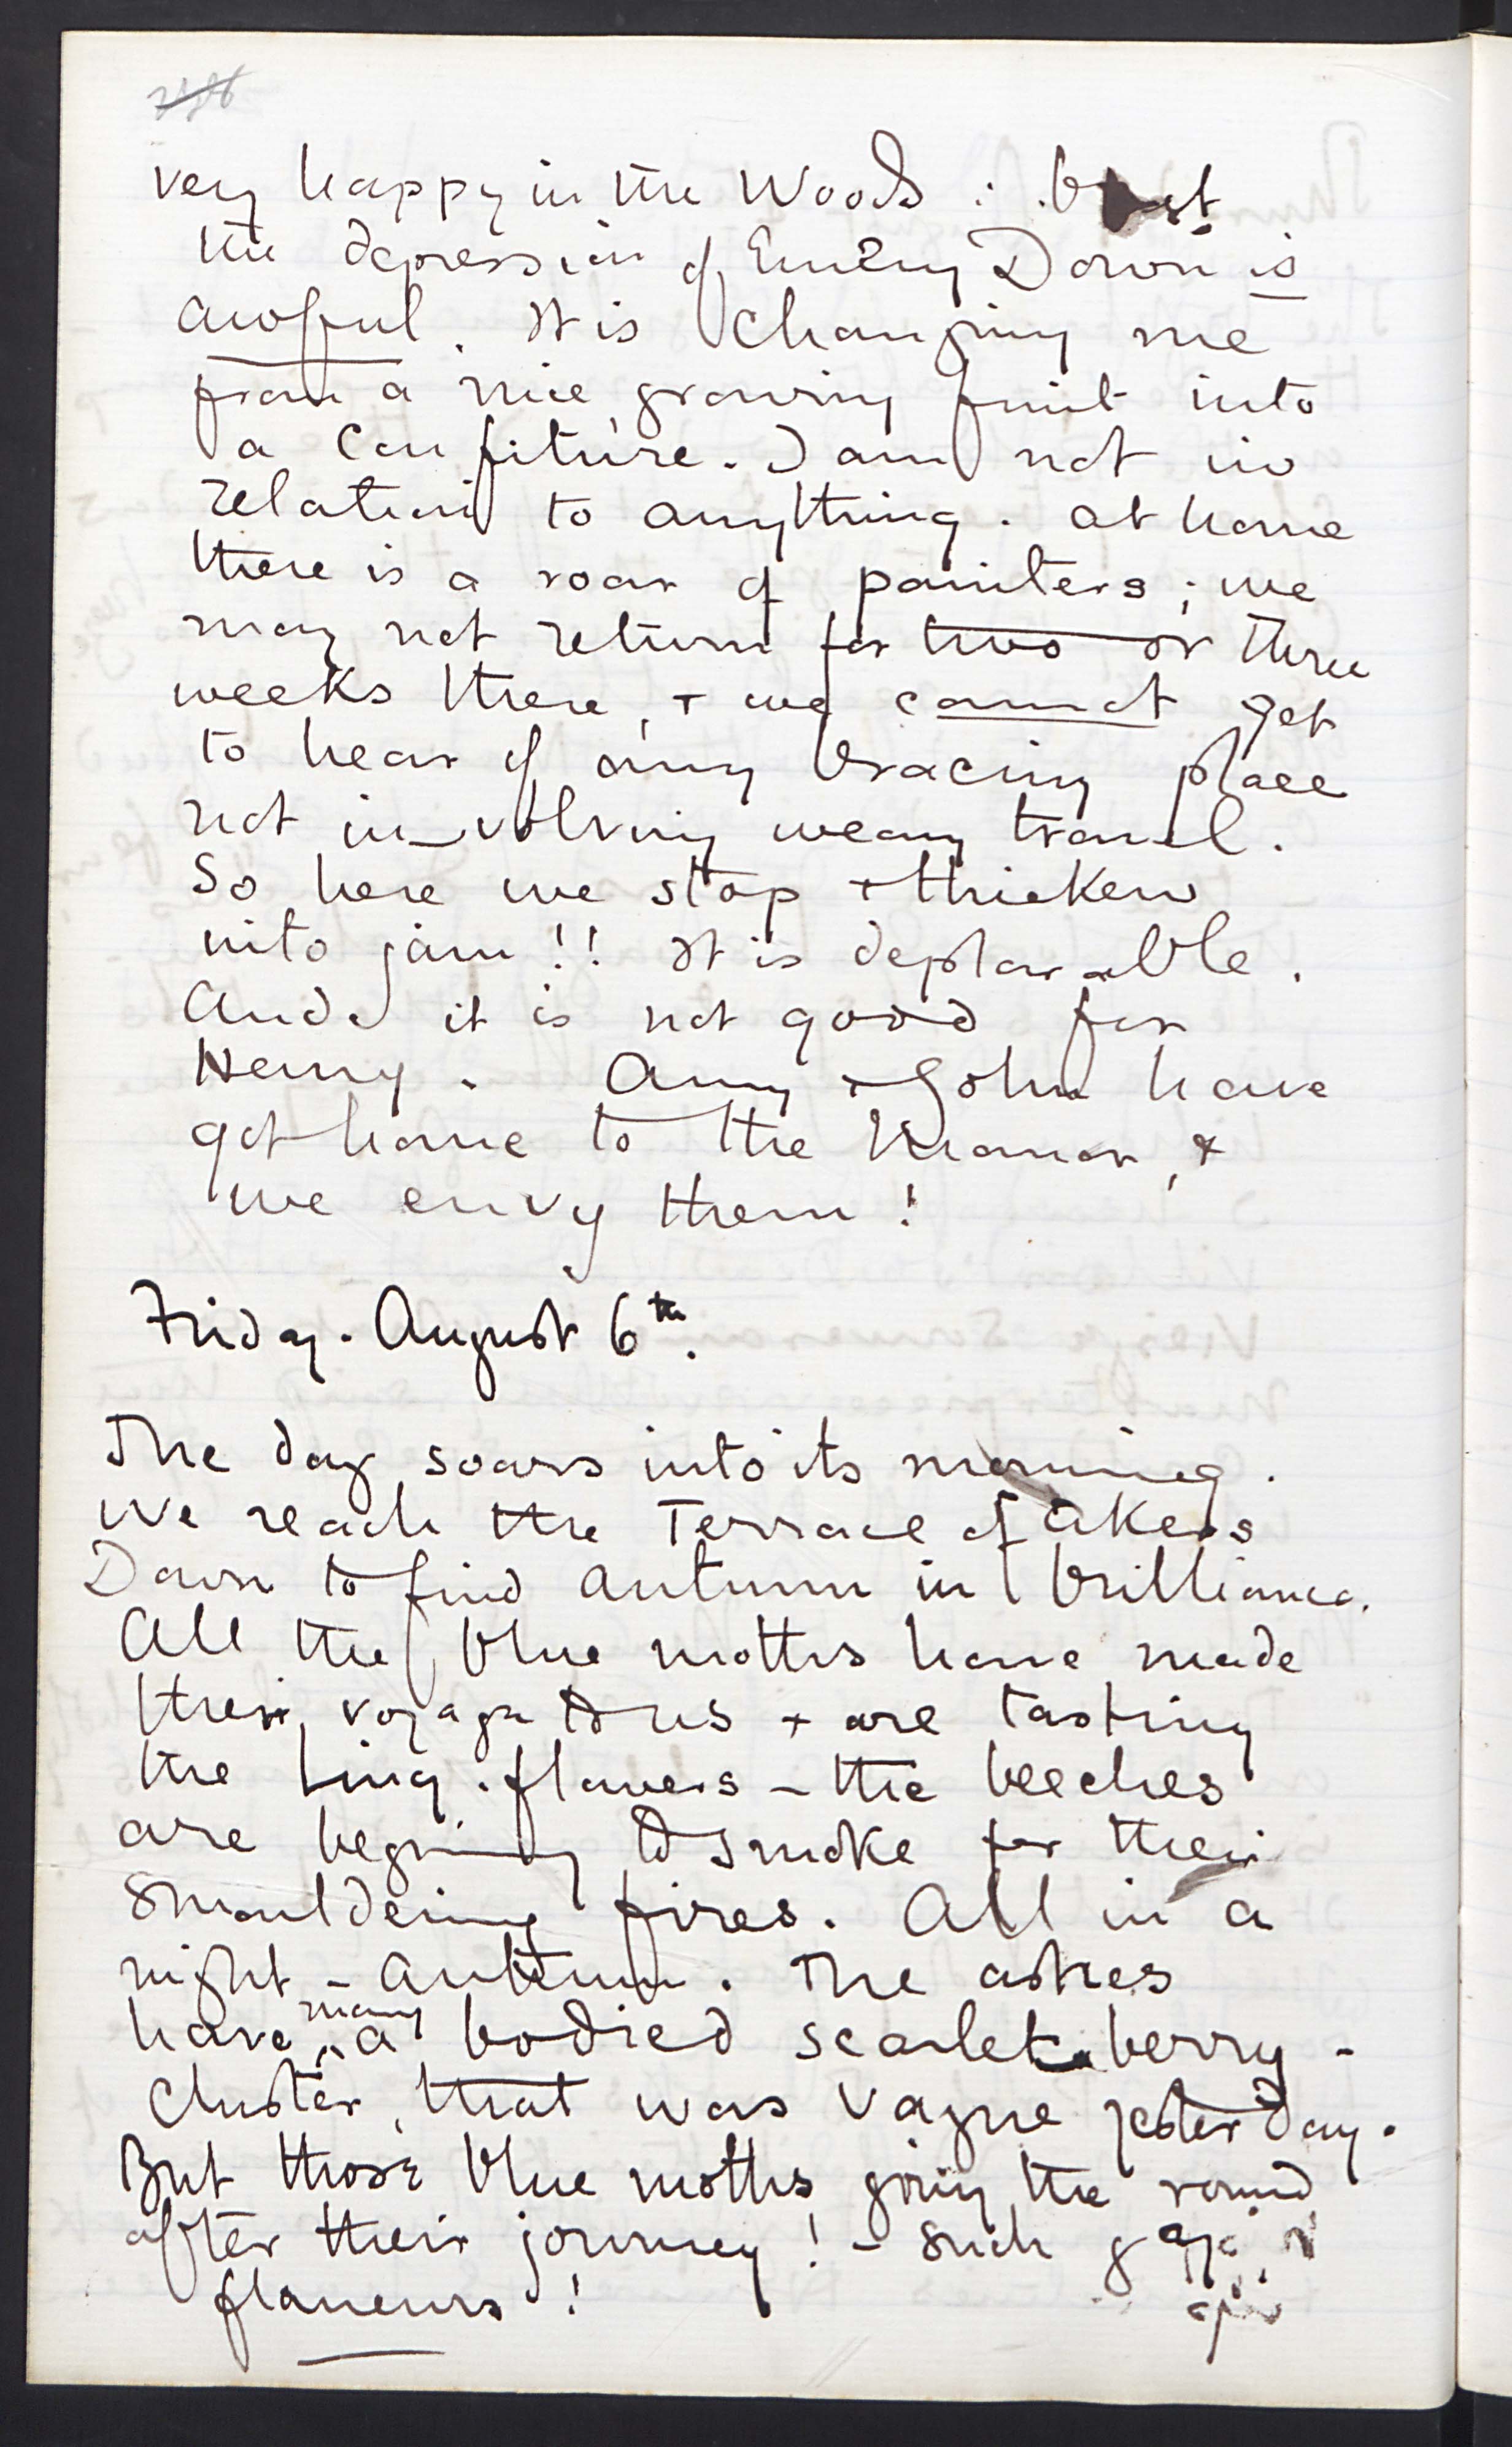 very happy in the Woods : but
the depression of Emery Down is
awful. It is changing me
from a nice growing fruit into
a confiture. I am not in
relation to anything. At home
there is a roar of painters ; we
may not return for two or three
weeks there, + we cannot get
to hear of any bracing place
not in-volving weary travel.
So here we stop + thicken
into jam!! It is deplorable.
And it is not good for
Henry. Amy + John have
got home to the Manor, &
we envy them!
Friday. August 6th.
The day soars into its morning.
We reach the Terrace of Akers
Down to find autumn in brilliance.
All the blue moths have made
their voyage to us + are tasting
the Ling-flowers – the beeches
are beginning to smoke for their
smouldering fires. All in a
night – Autumn. The ashes
have many a bodied scarlet berry-
cluster, that was vague yesterday.
But those blue moths going the round
after their journey! – such
flaneurs!